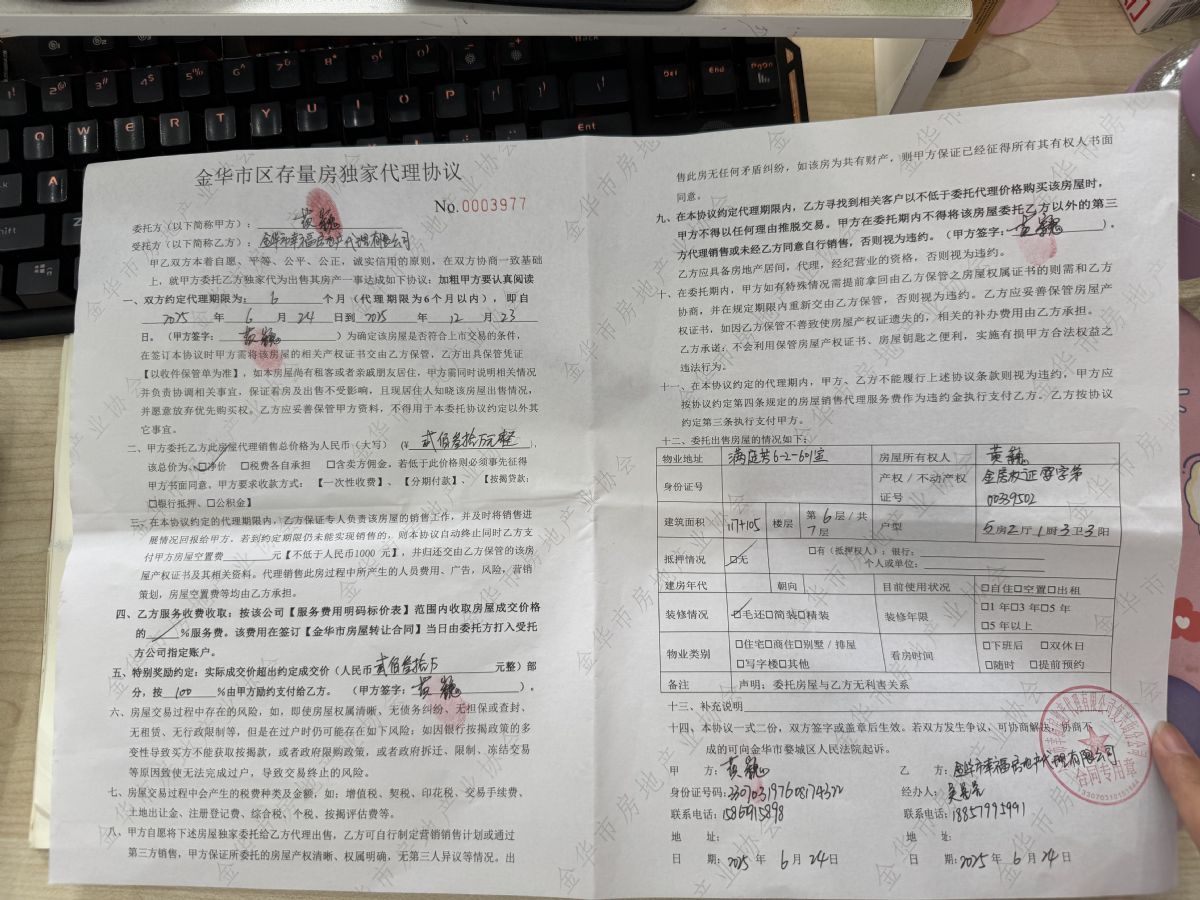 金华市区存量房独家代理协议
No.0003977
委托方（以下简称甲方）：黄巍
受托方（以下简称乙方）：金华市幸福房地产代理有限公司
甲乙双方本着自愿、平等、公平、公正，诚实信用的原则，在双方协商一致基础
上，就甲方委托乙方独家代为出售其房产一事达成如下协议：加粗甲方要认真阅读
一、双方约定代理期限为：6个月（代理期限为6个月以内），即自
2025年6月24日到2025年12月23
日。（甲方签字：黄巍）为确定该房屋是否符合上市交易的条件，
在签订本协议时甲方需将该房屋的相关产权证书交由乙方保管，乙方出具保管凭证
【以收件保管单为准】，如本房屋尚有租客或者亲戚朋友居住，甲方需同时说明相关情况
并负责协调相关事宜，保证看房及出售不受影响，且现居住人知晓该房屋出售情况，
并愿意放弃优先购买权。乙方应妥善保管甲方资料，不得用于本委托协议约定以外其
它事宜。
二、甲方委托乙方此房屋代理销售总价格为人民币（大写）（¥贰佰叁拾万元整），
该总价为、☑净价 □税费各自承担 □含卖方佣金。若低于此价格则必须事先征得
甲方书面同意。甲方要求收款方式：【一次性收费】、【分期付款】、【按揭贷款：
□银行抵押、□公积金】
三、在本协议约定的代理期限内，乙方保证专人负责该房屋的销售工作，并及时将销售进
展情况回报给甲方。若到约定期限仍未能实现销售的，则本协议自动终止同时乙方支
付甲方房屋空置费 元【不低于人民币1000 元】，并归还交由乙方保管的该房
屋产权证书及其相关资料。代理销售此房过程中所产生的人员费用、广告，风险，营销
策划，房屋空置费等均由乙方承担。
四、乙方服务收费收取：按该公司【服务费用明码标价表】范围内收取房屋成交价格
的/%服务费。该费用在签订【金华市房屋转让合同】当日由委托方打入受托
方公司指定账户。
五、特别奖励约定：实际成交价超出约定成交价（人民币贰佰叁拾万元整）部
分，按100%由甲方励约支付给乙方。（甲方签字：黄巍）。
六、房屋交易过程中存在的风险，如，即使房屋权属清晰、无债务纠纷、无担保或查封、
无租赁、无行政限制等，但是在过户时仍可能存在如下风险：如因银行按揭政策的多
变性导致买方不能获取按揭款，或者政府限购政策，或者政府拆迁、限制、冻结交易
等原因致使无法完成过户，导致交易终止的风险。
七、房屋交易过程中会产生的税费种类及金额，如：增值税、契税、印花税、交易手续费、
土地出让金、注册登记费、综合税、个税、按揭评估费等。
八、甲方自愿将下述房屋独家委托给乙方代理出售，乙方可自行制定营销销售计划或通过
第三方销售，甲方保证所委托的房屋产权清晰、权属明确，无第三人异议等情况。出
售此房无任何矛盾纠纷，如该房为共有财产，则甲方保证已经征得所有其有权人书面
同意。
九、在本协议约定代理期限内，乙方寻找到相关客户以不低于委托代理价格购买该房屋时，
甲方不得以任何理由推脱交易。甲方在委托期内不得将该房屋委托乙方以外的第三
方代理销售或未经乙方同意自行销售，否则视为违约。（甲方签字：黄巍）。
乙方应具备房地产居间，代理，经纪营业的资格，否则视为违约。
十、在委托期内，甲方如有特殊情况需提前拿回由乙方保管之房屋权属证书的则需和乙方
协商，并在规定期限内重新交由乙方保管，否则视为违约。乙方应妥善保管房屋产
权证书，如因乙方保管不善致使房屋产权证遗失的，相关的补办费用由乙方承担。
乙方承诺：不会利用保管房屋产权证书、房屋钥匙之便利，实施有损甲方合法权益之
违法行为。
十一、在本协议约定的代理期内，甲方、乙方不能履行上述协议条款则视为违约，甲方应
按协议约定第四条规定的房屋销售代理服务费作为违约金执行支付乙方。乙方按协议
约定第三条执行支付甲方。
十二、委托出售房屋的情况如下：
物业地址 满庭芳6-2-601室 房屋所有权人 黄巍
身份证号 产权/不动产权证号 金房权证婺字第00339502
建筑面积 117+105 楼层 第6层/共7层 户型 5房2厅1厨3卫3阳
抵押情况 ☑无 □有（抵押权人）：银行：
个人或单位：
建房年代 朝向 目前使用状况 □自住□空置□出租
装修情况 ☑毛还□简装□精装 装修年限 □1年□3年□5年
□5年以上
物业类别 □住宅□商住□别墅/排屋 看房时间 □下班后 □双休日
□写字楼□其他 □随时 □提前预约
备注 声明：委托房屋与乙方无利害关系
十三、补充说明
十四、本协议一式二份，双方签字或盖章后生效。若双方发生争议，可协商解决，协商不
成的可向金华市婺城区人民法院起诉。
甲 方：黄巍 乙 方：金华市幸福房地产代理有限公司
身份证号码：330703197608174322 经办人：吴昙昙
联系电话：1586915898 联系电话：18857995991
地 址： 地 址：
日 期：2025年6月24日 日 期：2025年6月24日
合同专用章